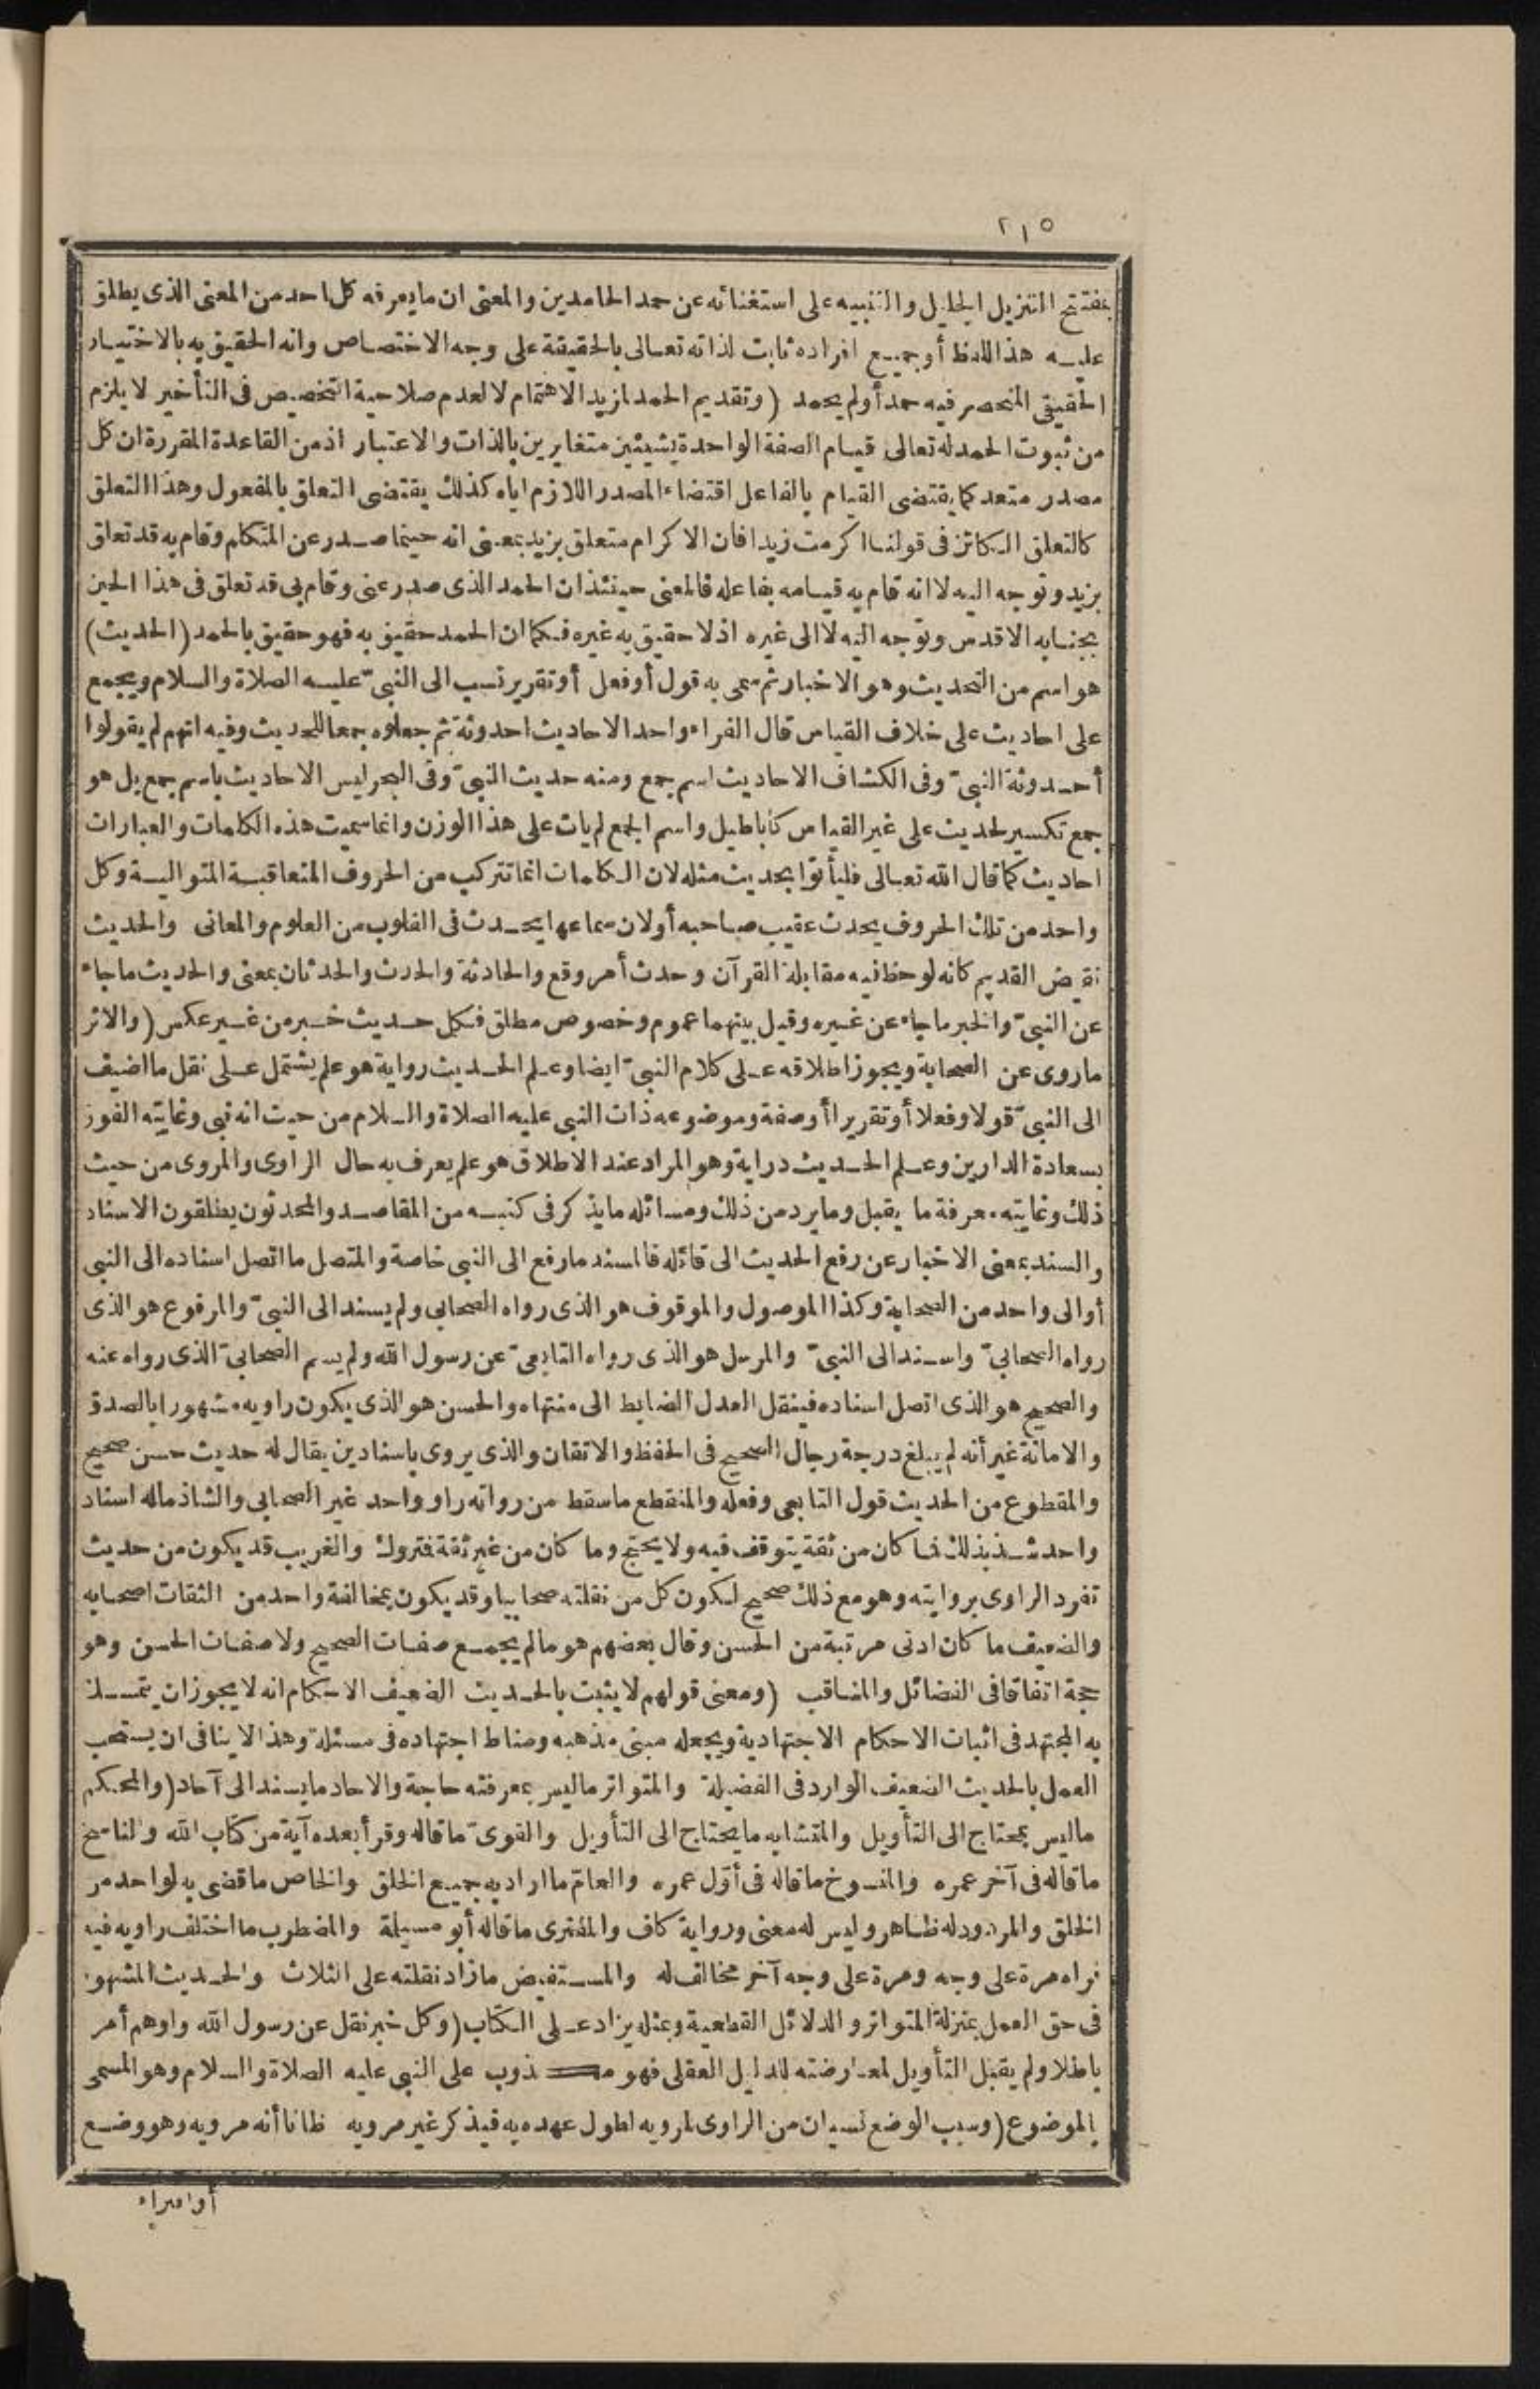 ٢١٥
بمفتتح التنزيل الجليل والتنبيه على استغنائه عن حمد الحامدين والمعنى ان ما يعرفه كل احد من المعنى الذى يطلق
عليه هذا اللفظ أو جميع افراده ثابت لذاته تعالى بالحقيقة على وجه الاختصاص وانه الحقيق به بالاختيار
الحقيقى المنحصر فيه حمد أولم يحمد (وتقديم الحمد لمزيد الاهتمام لا لعدم صلاحية التخصيص فى التأخير لا يلزم
من ثبوت الحمد له تعالى قيام الصفة الواحدة بشيئين متغايرين بالذات والاعتبار اذ من القاعدة المقررة ان كل
مصدر متعد كما يقتضى القيام بالفاعل اقتضاء المصدر اللازم اياه كذلك يقتضى التعلق بالمفعول وهذا التعلق
كالتعلق الكائن فى قولنا اكرمت زيدا فان الاكرام متعلق بزيد بمعنى انه حينما صدر عن المتكلم وقام به قد تعلق
بزيد وتوجه اليه لا انه قام به قيامه بفاعله فالمعنى حينئذ ان الحمد الذى صدر عنى وقام بى قد تعلق فى هذا الحين
بجنابه الاقدس وتوجه اليه لا الى غيره اذ لا حقيق به غيره فكما ان الحمد حقيق به فهو حقيق بالحمد (الحديث)
هو اسم من التحديث وهو الاخبار ثم سمى به قول أو فعل أو تقرير نسب الى النبىّ عليه الصلاة والسلام ويجمع
على احاديث على خلاف القياس قال الفراء واحد الاحاديث احدوثة ثم جعلوه جمعا للحديث وفيه انهم لم يقولوا
أحدوثة النبىّ وفى الكشاف الاحاديث اسم جمع ومنه حديث النبىّ وفى البحر ليس الاحاديث باسم جمع بل هو
جمع تكسير لحديث على غير القياس كأباطيل واسم الجمع لم يات على هذا الوزن وانما سميت هذه الكلمات والعبارات
احاديث كما قال الله تعالى فليأتوا بحديث مثله لان الكلمات انما تتركب من الحروف المتعاقبة المتوالية وكل
واحد من تلك الحروف يحدث عقيب صاحبه أولان سماعها يحدث فى القلوب من العلوم والمعانى والحديث
نقيض القديم كانه لوحظ فيه مقابلة القرآن وحدث أمر وقع والحادثة والحدث والحدثان بمعنى والحديث ما جاء
عن النبىّ والخبر ما جاء عن غيره وقيل بينهما عموم وخصوص مطلق فكل حديث خبر من غير عكس (والاثر
ما روى عن الصحابة ويجوز اطلاقه على كلام النبىّ ايضا وعلم الحديث رواية هو علم يشتمل على نقل ما اضيف
الى النبىّ قولا وفعلا أو تقريرا أو صفة وموضوعه ذات النبى عليه الصلاة والسلام من حيث انه نبى وغايته الفوز
بسعادة الدارين وعلم الحديث دراية وهو المراد عند الاطلاق هو علم يعرف به حال الراوى والمروى من حيث
ذلك وغايته معرفة ما يقبل وما يرد من ذلك ومسائله ما يذكر فى كتبه من المقاصد والمحدثون يطلقون الاسناد
والسند بمعنى الاخبار عن رفع الحديث الى قائله فالمسند ما رفع الى النبى خاصة والمتصل ما اتصل اسناده الى النبى
أو الى واحد من الصحابة وكذا الموصول والموقوف هو الذى رواه الصحابى ولم يسند الى النبىّ والمرفوع هو الذى
رواه الصحابىّ واسند الى النبىّ والمرسل هو الذى رواه التابعىّ عن رسول الله ولم يسم الصحابىّ الذى رواه عنه
والصحيح هو الذى اتصل اسناده فينقل العدل الضابط الى منتهاه والحسن هو الذى يكون راويه مشهورا بالصدق
والامانة غير أنه لم يبلغ درجة رجال الصحيح فى الحفظ والاتقان والذى يروى باسنادين يقال له حديث حسن صحيح
والمقطوع من الحديث قول التابعى وفعله والمنقطع ما سقط من رواته راو واحد غير الصحابى والشاذ ماله اسناد
واحد شذ بذلك فما كان من ثقة يتوقف فيه ولا يحتج وما كان من غير ثقة فتروك والغريب قد يكون من حديث
تفرد الراوى بروايته وهو مع ذلك صحيح لكون كل من نقلته صحابيا وقد يكون بمخالفة واحد من الثقات اصحابه
والضعيف ما كان ادنى مرتبة من الحسن وقال بعضهم هو مالم يجمع صفات الصحيح ولا صفات الحسن وهو
حجة اتفاقا فى الفضائل والمناقب (ومعنى قولهم لا يثبت بالحديث الضعيف الاحكام انه لا يجوز ان يتمسك
به المجتهد فى اثبات الاحكام الاجتهادية ويجعله مبنى مذهبه ومناط اجتهاده فى مسئلة وهذا لا ينافى ان يستحب
العمل بالحديث الضعيف الوارد فى الفضيلة والمتواتر ماليس بمعرفته حاجة والاحاد ما يسند الى آحاد (والمحكم
ماليس بمحتاج الى التأويل والمتشابه ما يحتاج الى التأويل والقوىّ ما قاله وقرأ بعده آية من كتاب الله والناسخ
ما قاله فى آخر عمره والمنسوخ ما قاله فى أوّل عمره والعامّ ما اراد به جميع الخلق والخاص ما قضى به لواحد من
الخلق والمردود له ظاهر وليس له معنى ورواية كاف والمفترى ما قاله أبو مسيلمة والمضطرب ما اختلف راويه فيه
فراه مرة على وجه ومرة على وجه آخر مخالف له والمستفيض ما زاد نقلته على الثلاث والحديث المشهور
فى حق العمل بمنزلة المتواتر والدلائل القطعية وبمثله يزاد على الكتاب (وكل خبر نقل عن رسول الله واوهم أمر
باطلا ولم يقبل التأويل لمعارضته للدليل العقلى فهو مكذوب على النبى عليه الصلاة والسلام وهو المسمى
بالموضوع (وسبب الوضع نسيان من الراوى لمرويه لطول عهده به فيذكر غير مرويه ظانا أنه مرويه وهو وضع
أو افتراء